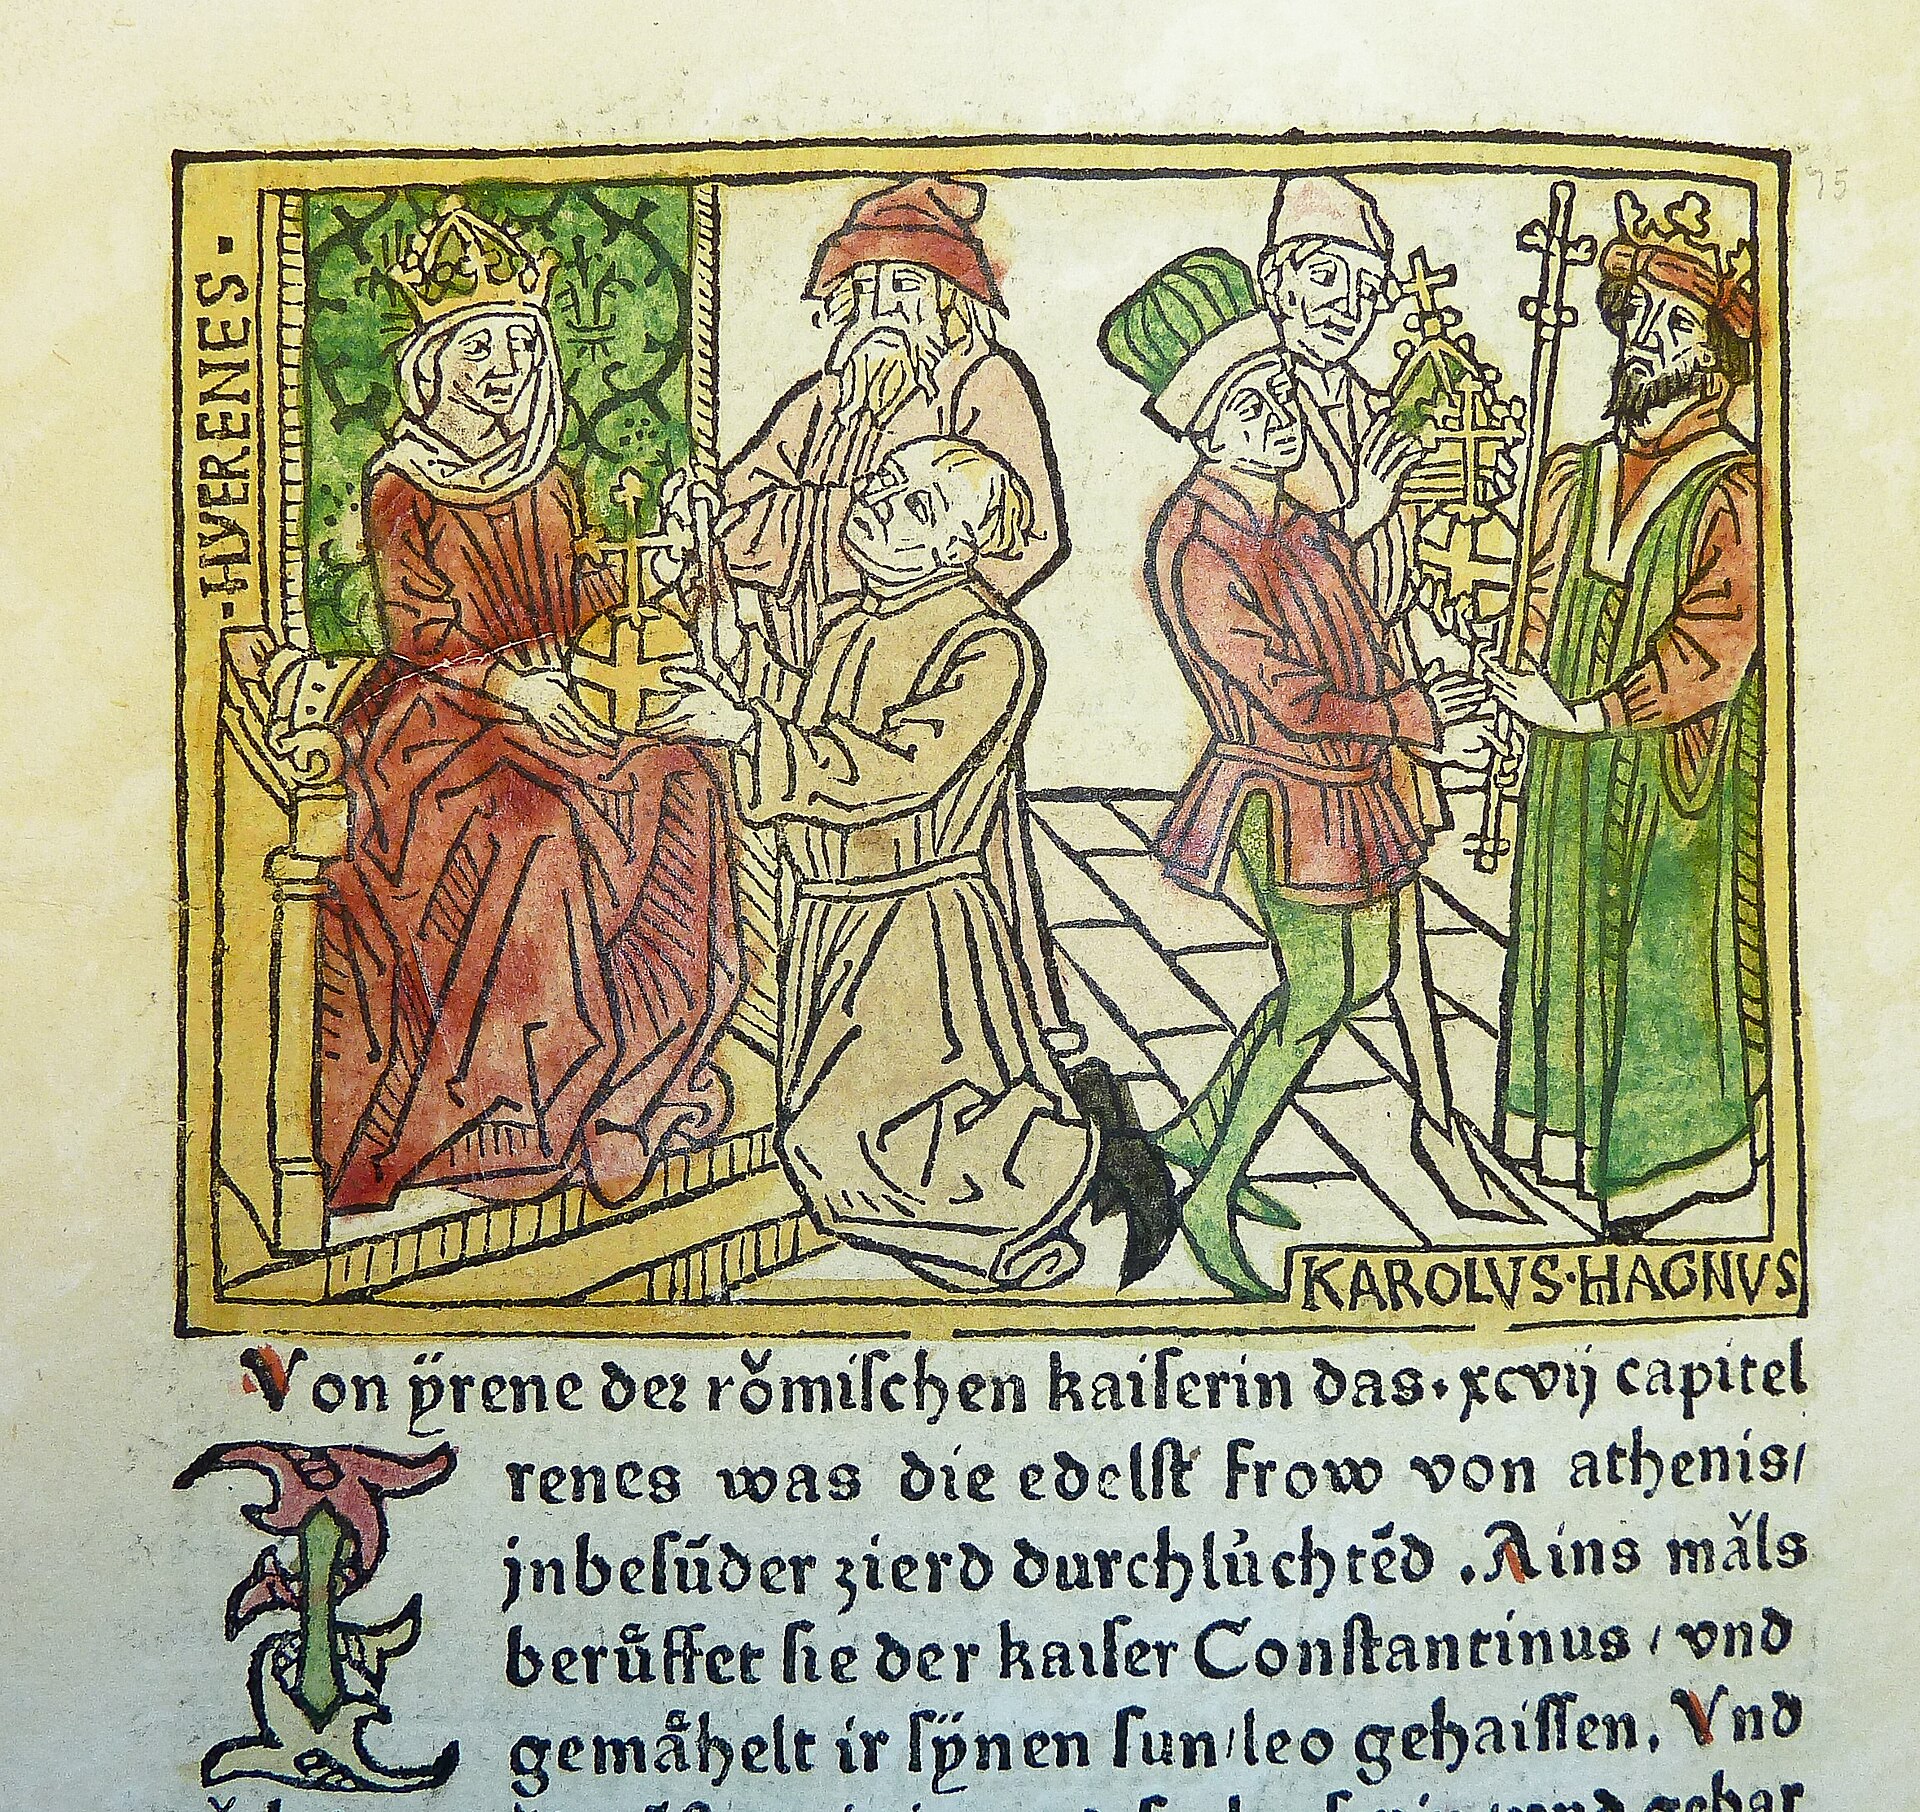 ·HYERENES·
KAROLVS·HAGNVS
Von ÿrene der rŏmischen kaiserin das·xcvij capitel
I renes was die edelst frow von athenis/
jnbesūder zierd durchlùchtēd . Ains măls
berůffet sie der kaiser Constantinus / vnd
gemåhelt ir sÿnen sun/leo gehaissen. Vnd